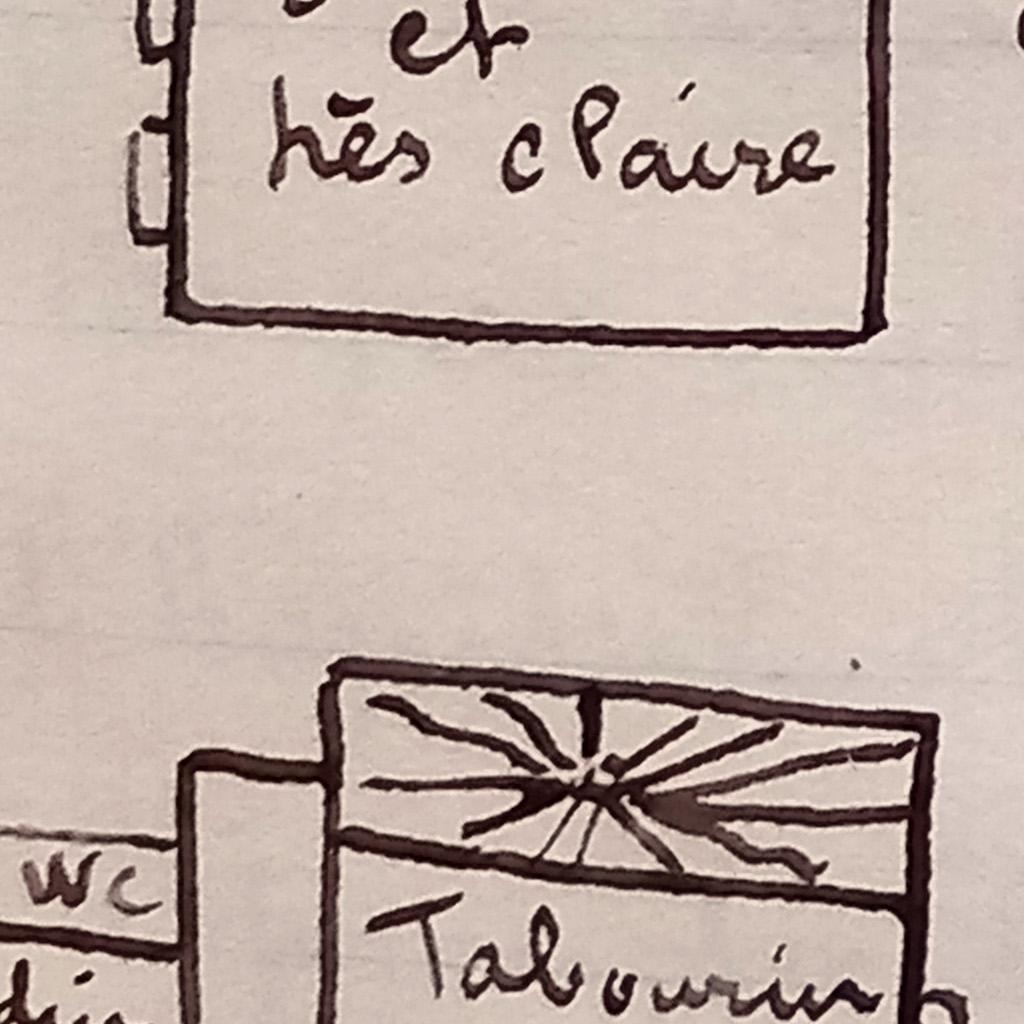 et
très claire
WC
Tabourin